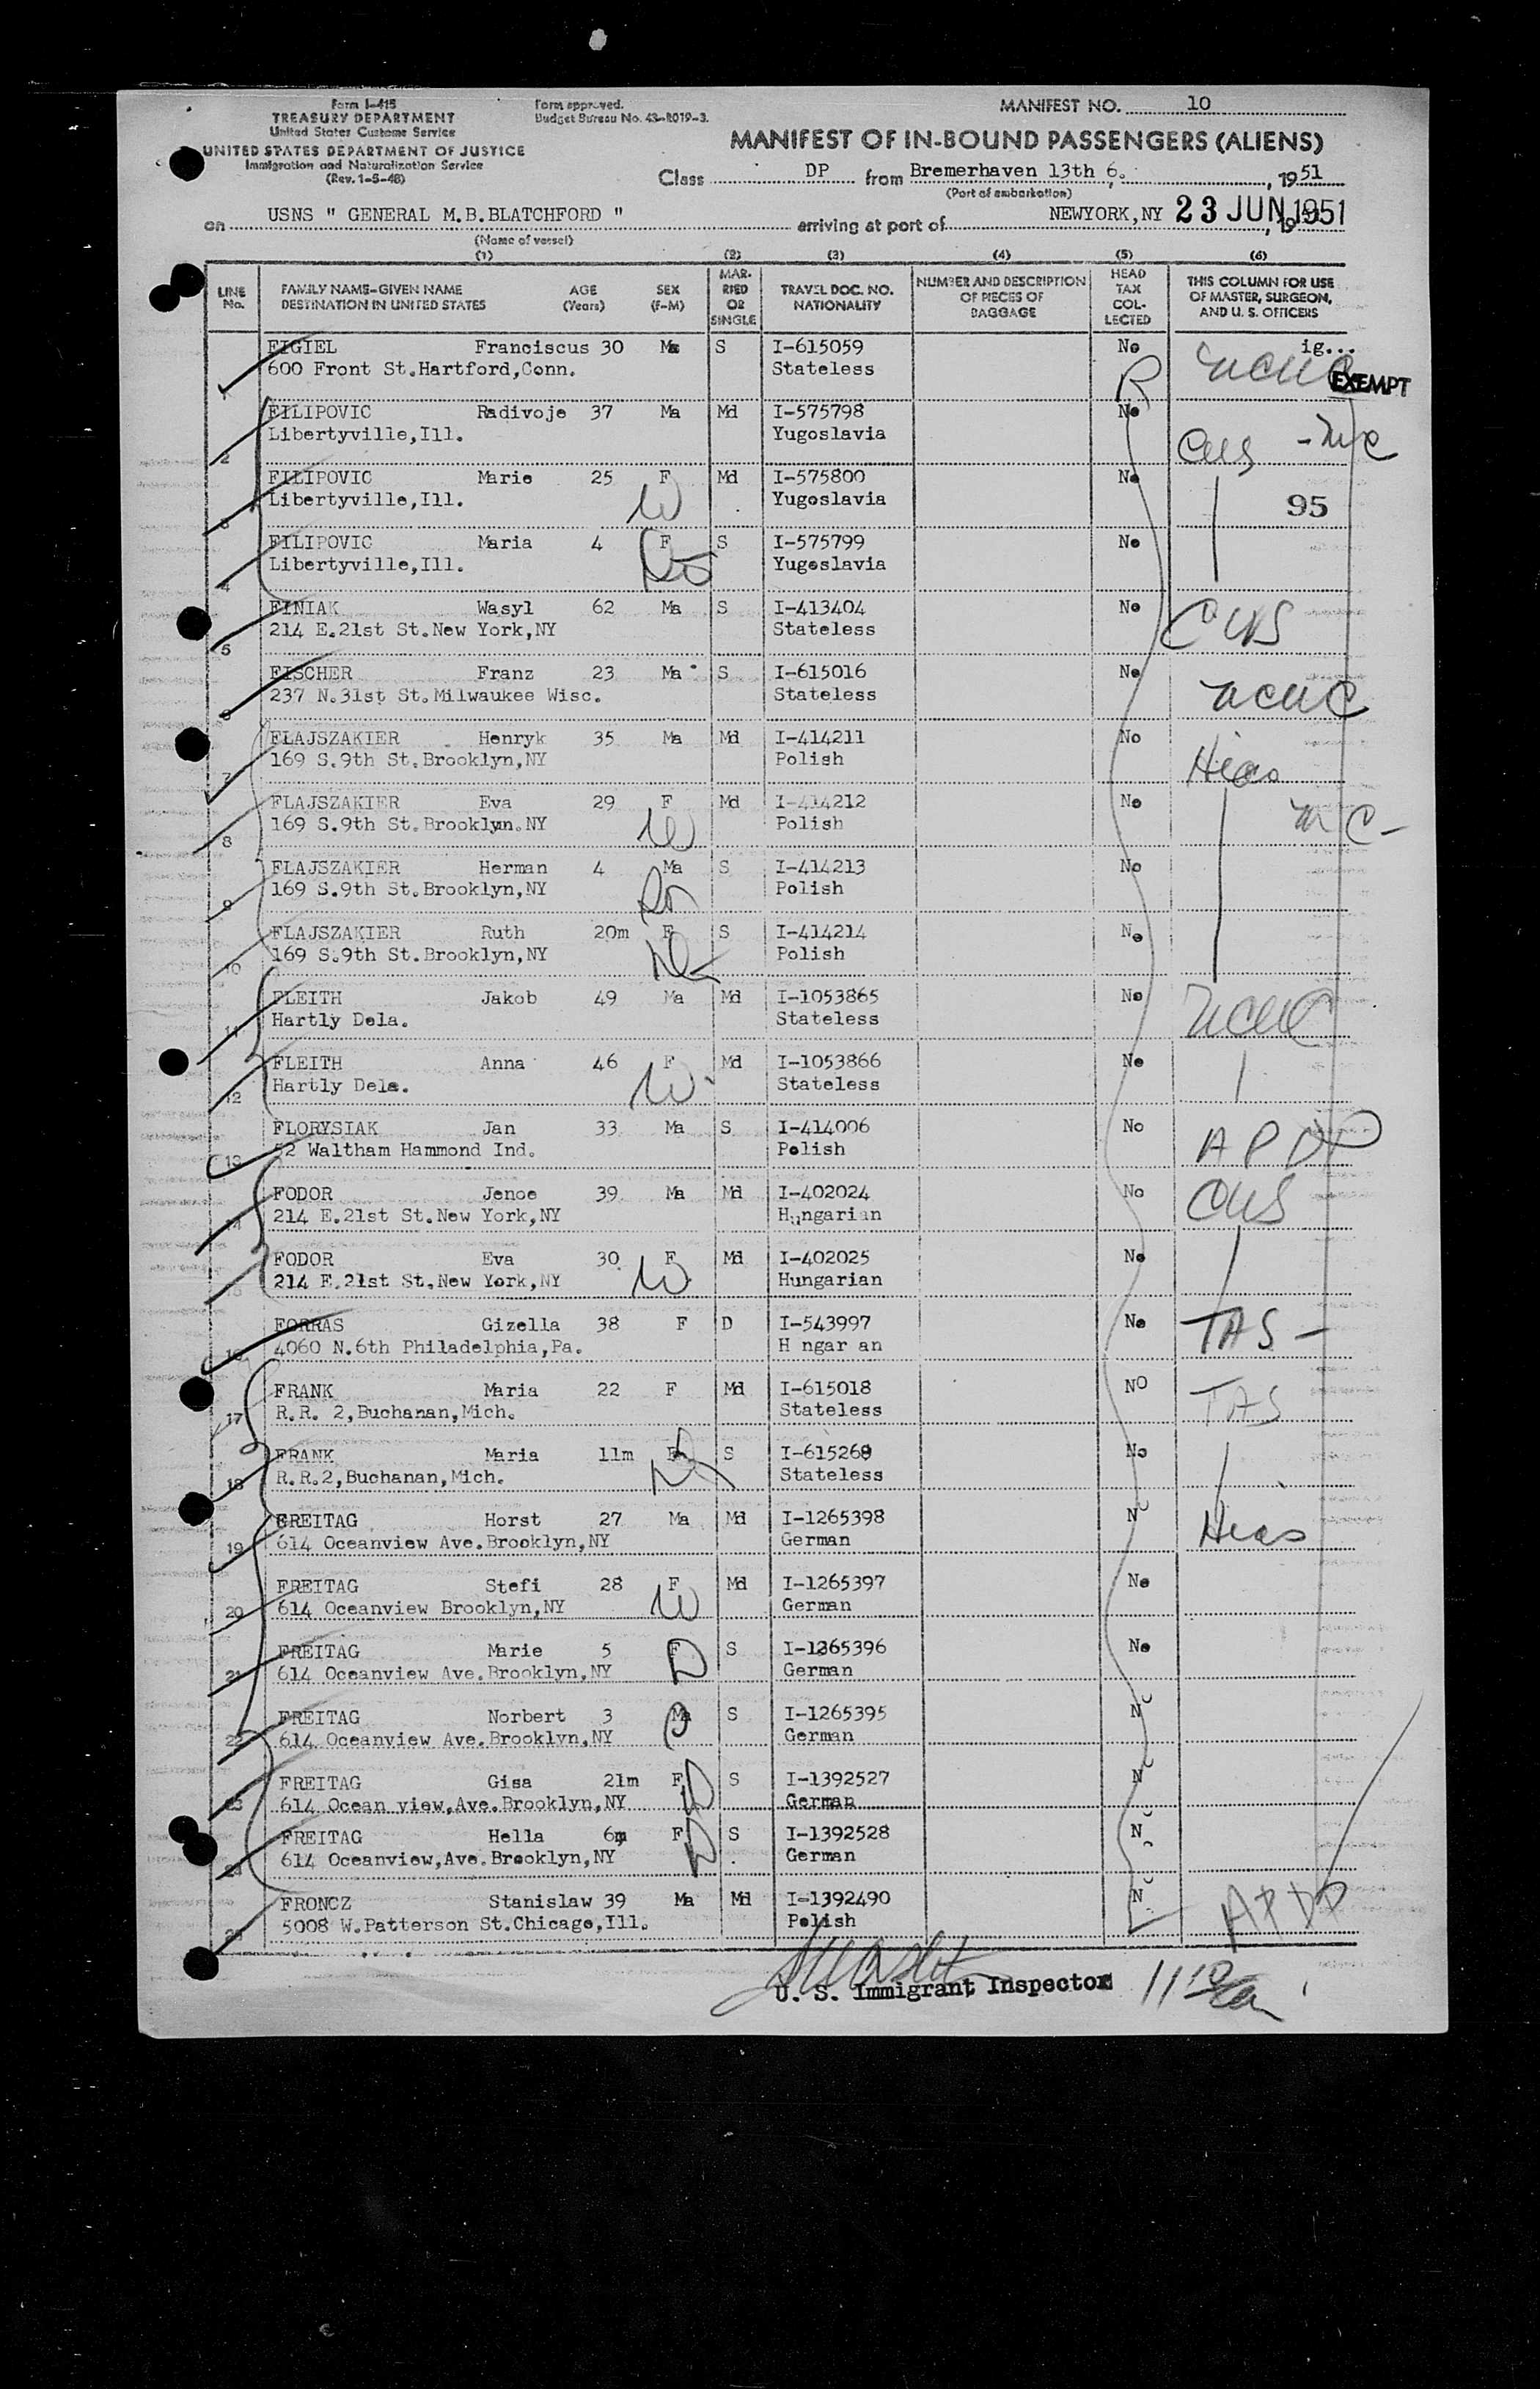 Form I-415
TREASURY DEPARTMENT
United States Customs Service
UNITED STATES DEPARTMENT OF JUSTICE
Immigration and Naturalization Service
(Rev. 1-5-48)
Form approved.
Budget Bureau No. 43-R019-3.
MANIFEST NO. 10
MANIFEST OF IN-BOUND PASSENGERS (ALIENS)
Class DP from Bremerhaven 13th 6. , 1951
(Port of embarkation)
on USNS " GENERAL M.B.BLATCHFORD " arriving at port of NEWYORK,NY 23 JUN 1951, 19
(Name of vessel)
(1) (2) (3) (4) (5) (6)
LINE No. FAMILY NAME-GIVEN NAME DESTINATION IN UNITED STATES AGE (Years) SEX (F-M) MARRIED OR SINGLE TRAVEL DOC. NO. NATIONALITY NUMBER AND DESCRIPTION OF PIECES OF BAGGAGE HEAD TAX COLLECTED THIS COLUMN FOR USE OF MASTER, SURGEON, AND U. S. OFFICERS
1 FIGIEL Franciscus 30 Ma S I-615059 No ig...
600 Front St.Hartford,Conn. Stateless R NCWC EXEMPT
2 FILIPOVIC Radivoje 37 Ma Md I-575798 No
Libertyville,Ill. Yugoslavia CWS
3 FILIPOVIC Marie 25 F Md I-575800 No
Libertyville,Ill. W Yugoslavia 95
4 FILIPOVIC Maria 4 F S I-575799 No
Libertyville,Ill. Yugoslavia
5 FINIAK Wasyl 62 Ma S I-413404 No CWS
214 E.21st St.New York,NY Stateless
6 FISCHER Franz 23 Ma S I-615016 No
237 N.31st St.Milwaukee Wisc. Stateless NCWC
7 FLAJSZAKIER Henryk 35 Ma Md I-414211 No
169 S.9th St.Brooklyn,NY Polish Hias
8 FLAJSZAKIER Eva 29 F Md I-414212 No
169 S.9th St.Brooklyn.NY W Polish
9 FLAJSZAKIER Herman 4 Ma S I-414213 No
169 S.9th St.Brooklyn,NY Polish
10 FLAJSZAKIER Ruth 20m F S I-414214 No
169 S.9th St.Brooklyn,NY Polish
11 FLEITH Jakob 49 Ma Md I-1053865 No
Hartly Dela. Stateless NCWC
12 FLEITH Anna 46 F Md I-1053866 No
Hartly Dela. W Stateless
13 FLORYSIAK Jan 33 Ma S I-414006 No
52 Waltham Hammond Ind. Polish A P D P
14 FODOR Jenoe 39 Ma Md I-402024 No CWS
214 E.21st St.New York,NY Hungarian
15 FODOR Eva 30 F Md I-402025 No
214 E.21st St.New York,NY W Hungarian
16 FORRAS Gizella 38 F D I-543997 No TAS -
4060 N.6th Philadelphia,Pa. H ngar an
17 FRANK Maria 22 F Md I-615018 NO
R.R. 2,Buchanan,Mich. Stateless TAS
18 FRANK Maria 11m F S I-615268 No
R.R.2,Buchanan,Mich. Stateless
19 FREITAG Horst 27 Ma Md I-1265398 No Hias
614 Oceanview Ave.Brooklyn,NY German
20 FREITAG Stefi 28 F Md I-1265397 No
614 Oceanview Brooklyn,NY W German
21 FREITAG Marie 5 F S I-1265396 No
614 Oceanview Ave.Brooklyn,NY D German
22 FREITAG Norbert 3 Ma S I-1265395 No
614 Oceanview Ave.Brooklyn,NY German
23 FREITAG Gisa 21m F S I-1392527 No
614 Ocean view,Ave.Brooklyn,NY D German
24 FREITAG Hella 6m F S I-1392528 No
614 Oceanview,Ave.Brooklyn,NY D German
25 FRONCZ Stanislaw 39 Ma Md I-1392490 No
5008 W.Patterson St.Chicago,Ill. Polish APDP
U. S. Immigrant Inspector